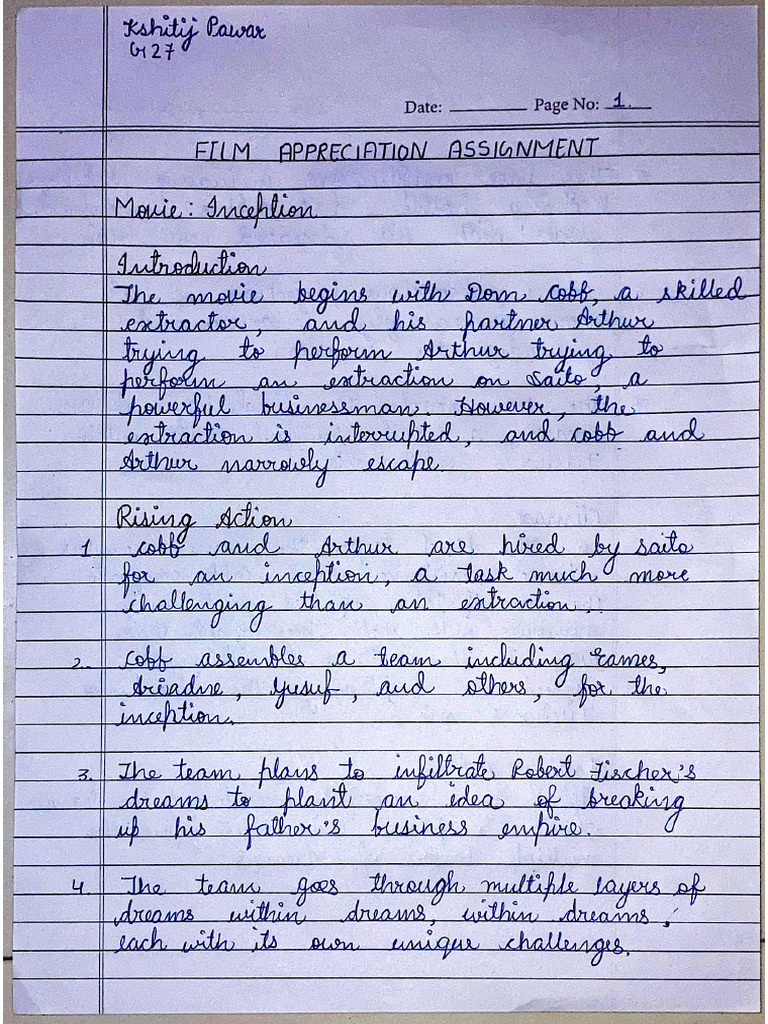 Kshitij Pawar
G27
Date: ________ Page No: 1.
FILM APPRECIATION ASSIGNMENT
Movie: Inception
Introduction
The movie begins with Dom Cobb, a skilled
extractor, and his partner Arthur
trying to perform Arthur trying to
perform an extraction on Saito, a
powerful businessman. However, the
extraction is interrupted, and Cobb and
Arthur narrowly escape.
Rising Action
1 Cobb and Arthur are hired by Saito
for an inception, a task much more
challenging than an extraction..
2. Cobb assembles a team including Eames,
Ariadne, Yusuf, and others, for the
inception.
3. The team plans to infiltrate Robert Fischer's
dreams to plant an idea of breaking
up his father's business empire.
4. The team goes through multiple layers of
dreams within dreams, within dreams,
each with its own unique challenges.